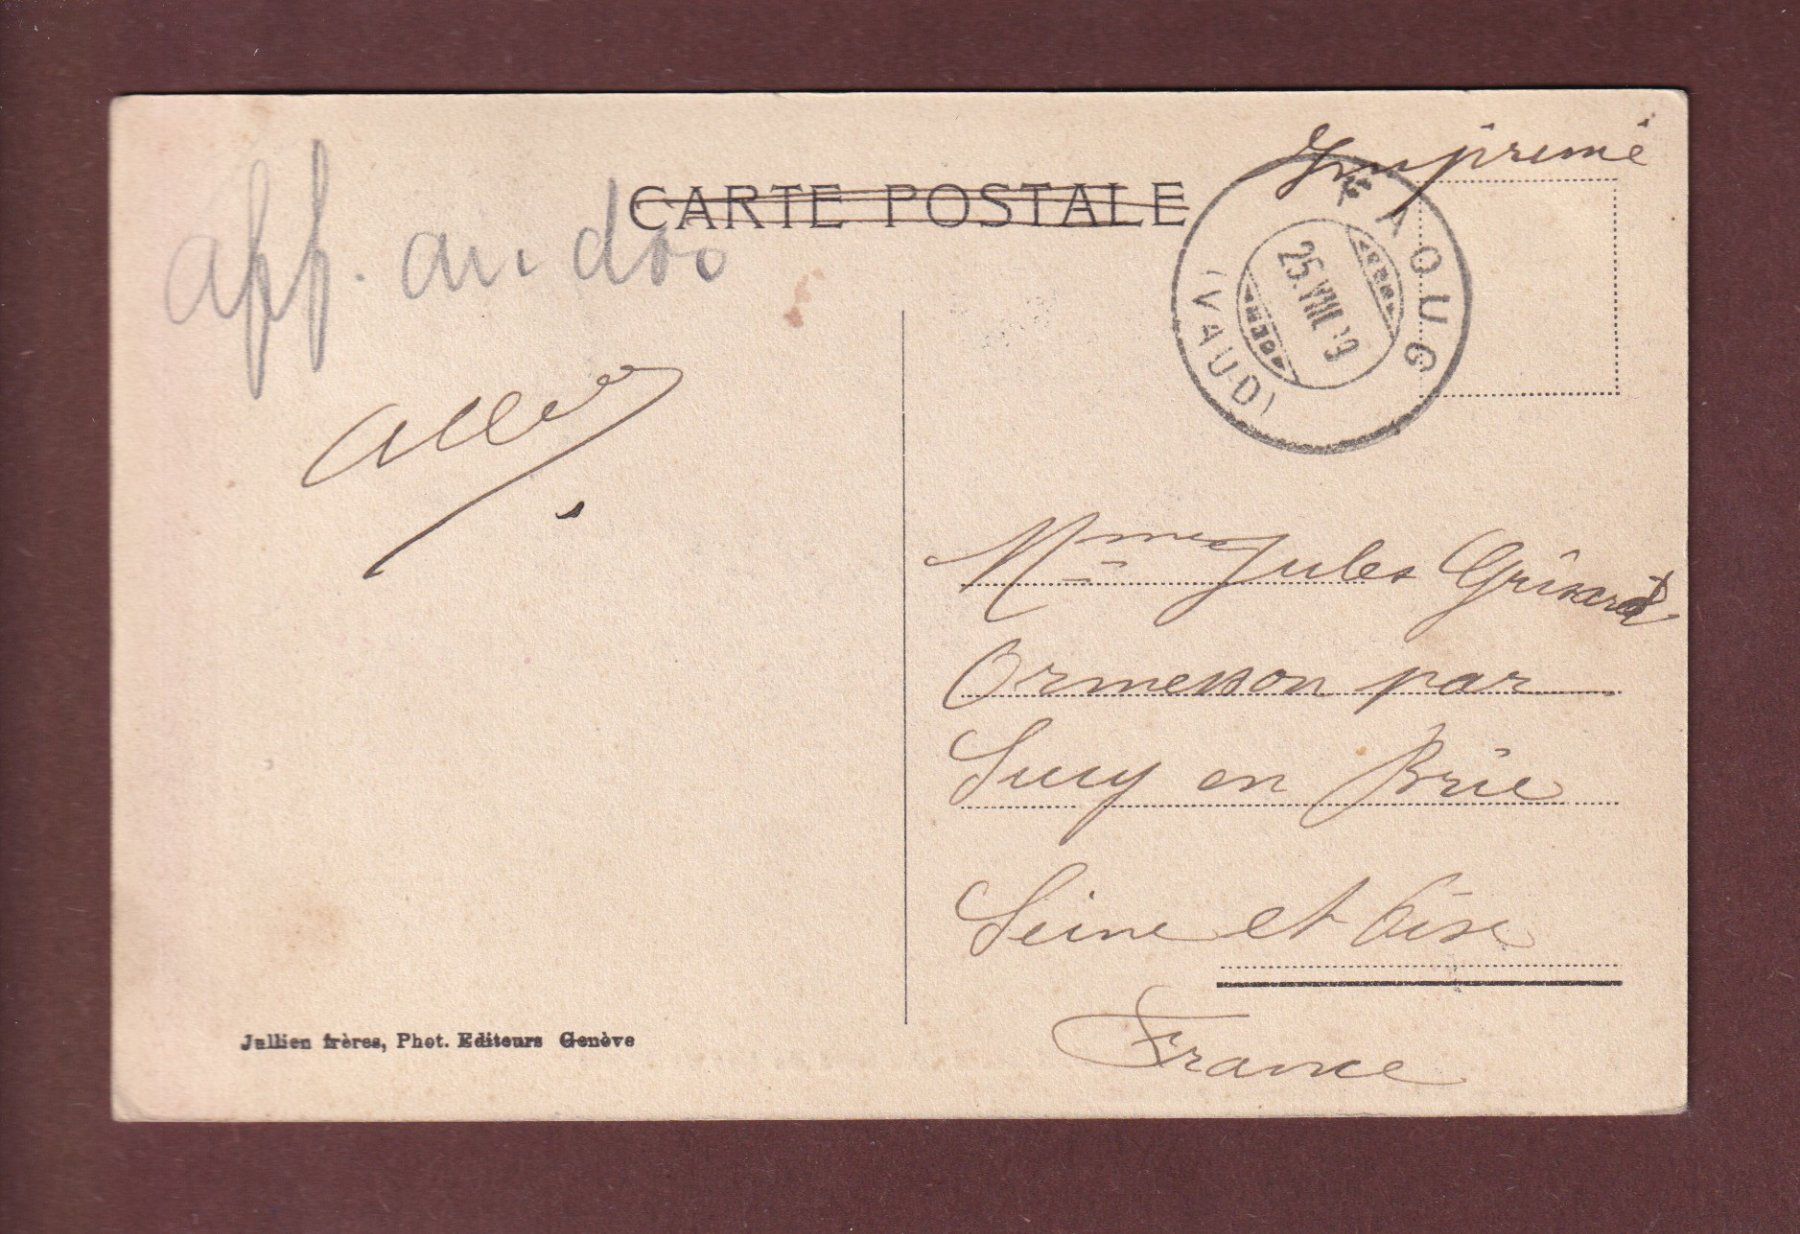 Imprimé
CARTE POSTALE
app. au dos
FAOUG
25.VIII.
(VAUD)
Mme Jules Grisard
Ormesson par
Sucy en Brie
Seine et Oise
France
Jullien frères, Phot. Editeurs Genève